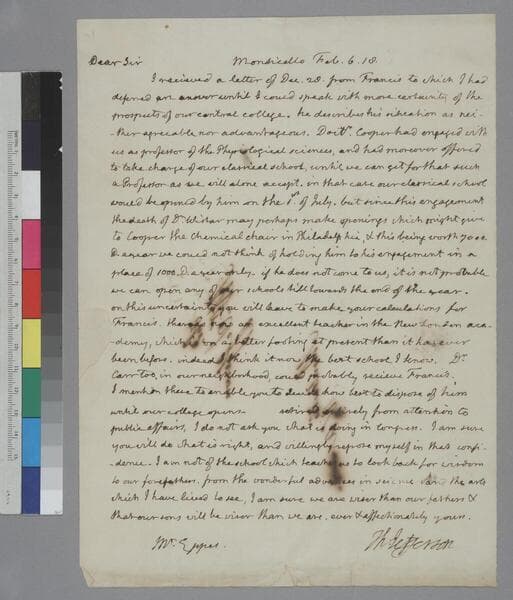 Dear Sir Monticello Feb. 6. 18.
I recieved a letter of Dec. 28. from Francis to which I had
deferred an answer until I could speak with more certainty of the
prospects of our central college. he describes his situation as nei-
ther agreeable nor advantageous. Doctr. Cooper had engaged with
us as professor of the Physiological sciences, and had moreover offered
to take charge of our classical school, until we can get for that such
a Professor as we will alone accept. in that case our classical school
would be opened by him on the 1st of July. but since this engagement
the death of Dr. Wistar may perhaps make openings which might give
to Cooper the Chemical chair in Philadelphia, & this being worth 7000.
D. a year we could not think of holding him to his engagement in a
place of 1000. D. a year only. if he does not come to us, it is not probable
we can open any of our schools till towards the end of the year.
on this uncertainty you will have to make your calculations for
Francis. there is now an excellent teacher in the New London aca-
demy, which is on a better footing at present than it has ever
been before. indeed I think it now the best school I know. Dr.
Carr too, in our neighborhood, could probably recieve Francis.
I mention these to enable you to decide how best to dispose of him
until our college opens. retired entirely from attention to
public affairs, I do not ask you what is doing in Congress. I am sure
you will do what is right, and willingly repose myself in that confi-
dence. I am not of the school which teaches us to look back for wisdom
to our forefathers. from the wonderful advances in science and the arts
which I have lived to see, I am sure we are wiser than our fathers &
that our sons will be wiser than we are. ever & affectionately yours.
Mr. Eppes. Th: Jefferson